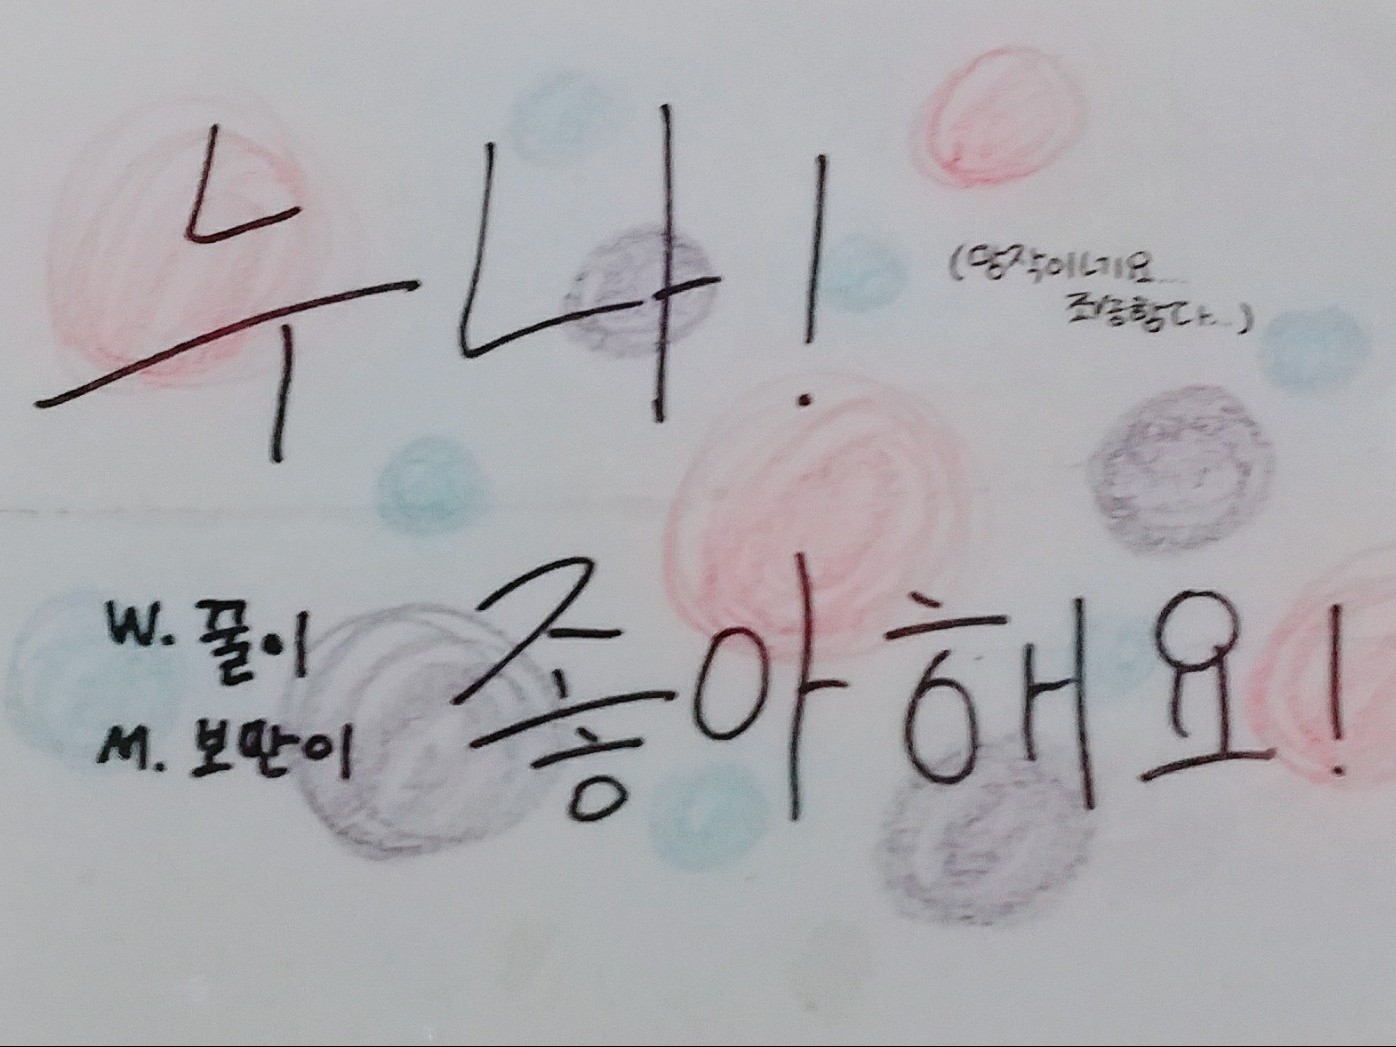 누나!
(망작이네요...
죄송함다...)
W. 꿀이
M. 보만이
좋아해요!